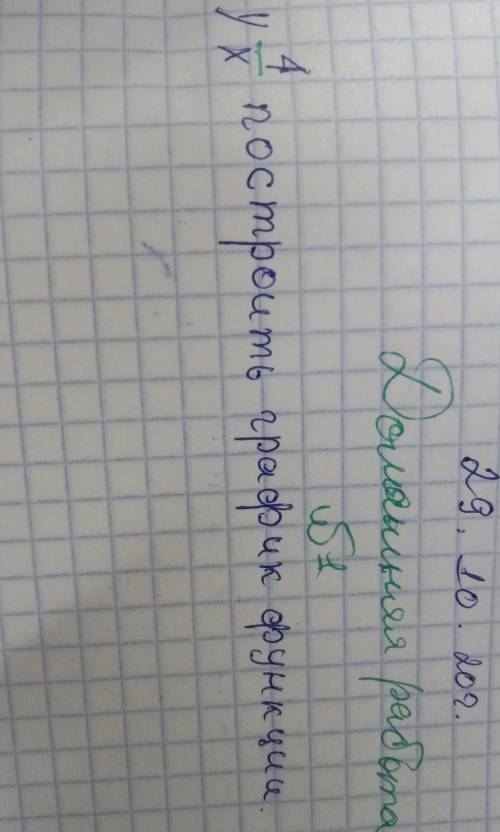 29. 10. 20г.
Домашняя работа
№1
y 4/x построить график функции.